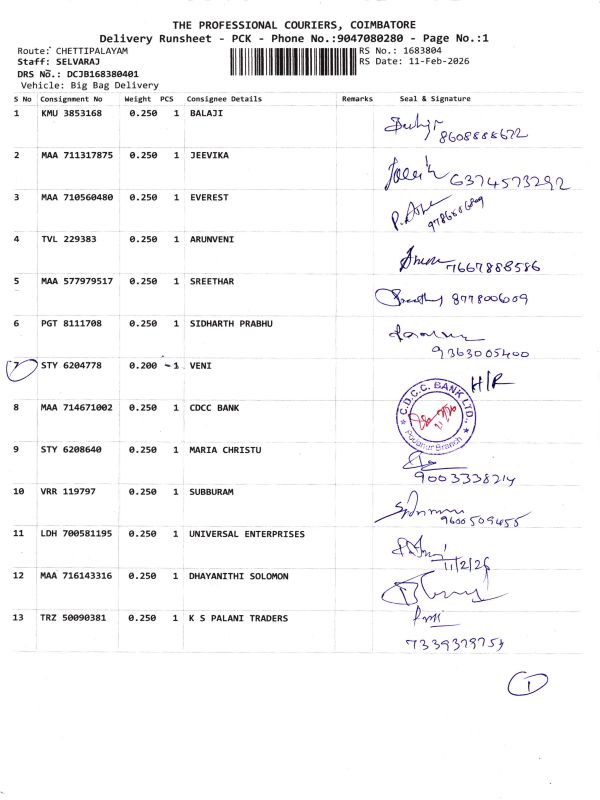 THE PROFESSIONAL COURIERS, COIMBATORE
Delivery Runsheet - PCK - Phone No.:9047080280 - Page No.:1
Route: CHETTIPALAYAM RS No.: 1683804
Staff: SELVARAJ RS Date: 11-Feb-2026
DRS No.: DCJB168380401
Vehicle: Big Bag Delivery
S No Consignment No Weight PCS Consignee Details Remarks Seal & Signature
1 KMU 3853168 0.250 1 BALAJI
8608888672
2 MAA 711317875 0.250 1 JEEVIKA
6374573292
3 MAA 710560480 0.250 1 EVEREST
4 TVL 229383 0.250 1 ARUNVENI
7667888586
5 MAA 577979517 0.250 1 SREETHAR
877800609
6 PGT 8111708 0.250 1 SIDHARTH PRABHU
9363005400
7 STY 6204778 0.200 1 VENI
H/R
8 MAA 714671002 0.250 1 CDCC BANK
C.D.C.C. BANK LTD.,
Podanur Branch
9 STY 6208640 0.250 1 MARIA CHRISTU
9003338214
10 VRR 119797 0.250 1 SUBBURAM
9600509455
11 LDH 700581195 0.250 1 UNIVERSAL ENTERPRISES
11/2/26
12 MAA 716143316 0.250 1 DHAYANITHI SOLOMON
13 TRZ 50090381 0.250 1 K S PALANI TRADERS
7339379754
1